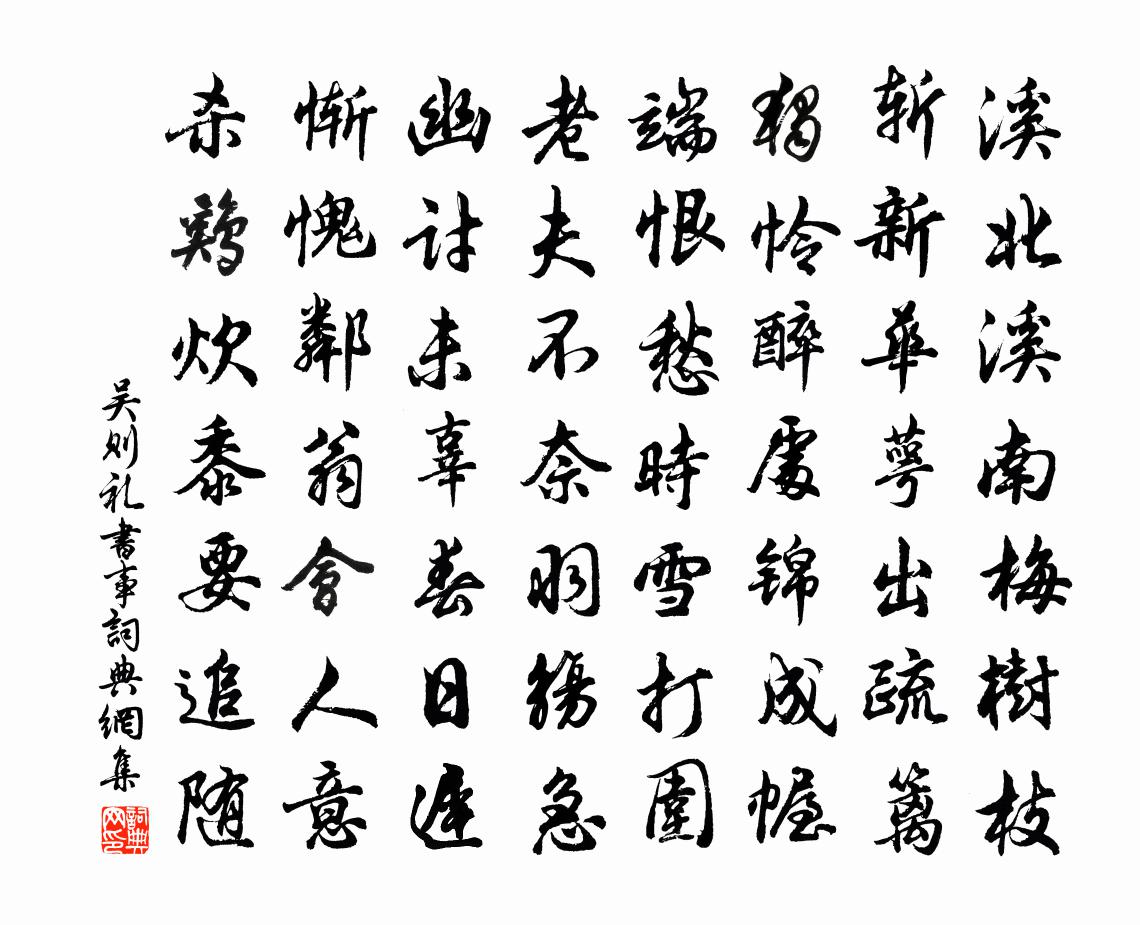 溪北溪南梅樹枝
斬新華萼出疏籬
獨憐醉處錦成幄
端恨愁時雪打圍
老夫不奈羽觴急
幽討未辜春日遲
慚愧鄰翁會人意
杀鷄炊黍要追随
吴则礼書事詞典網集
詞典网印